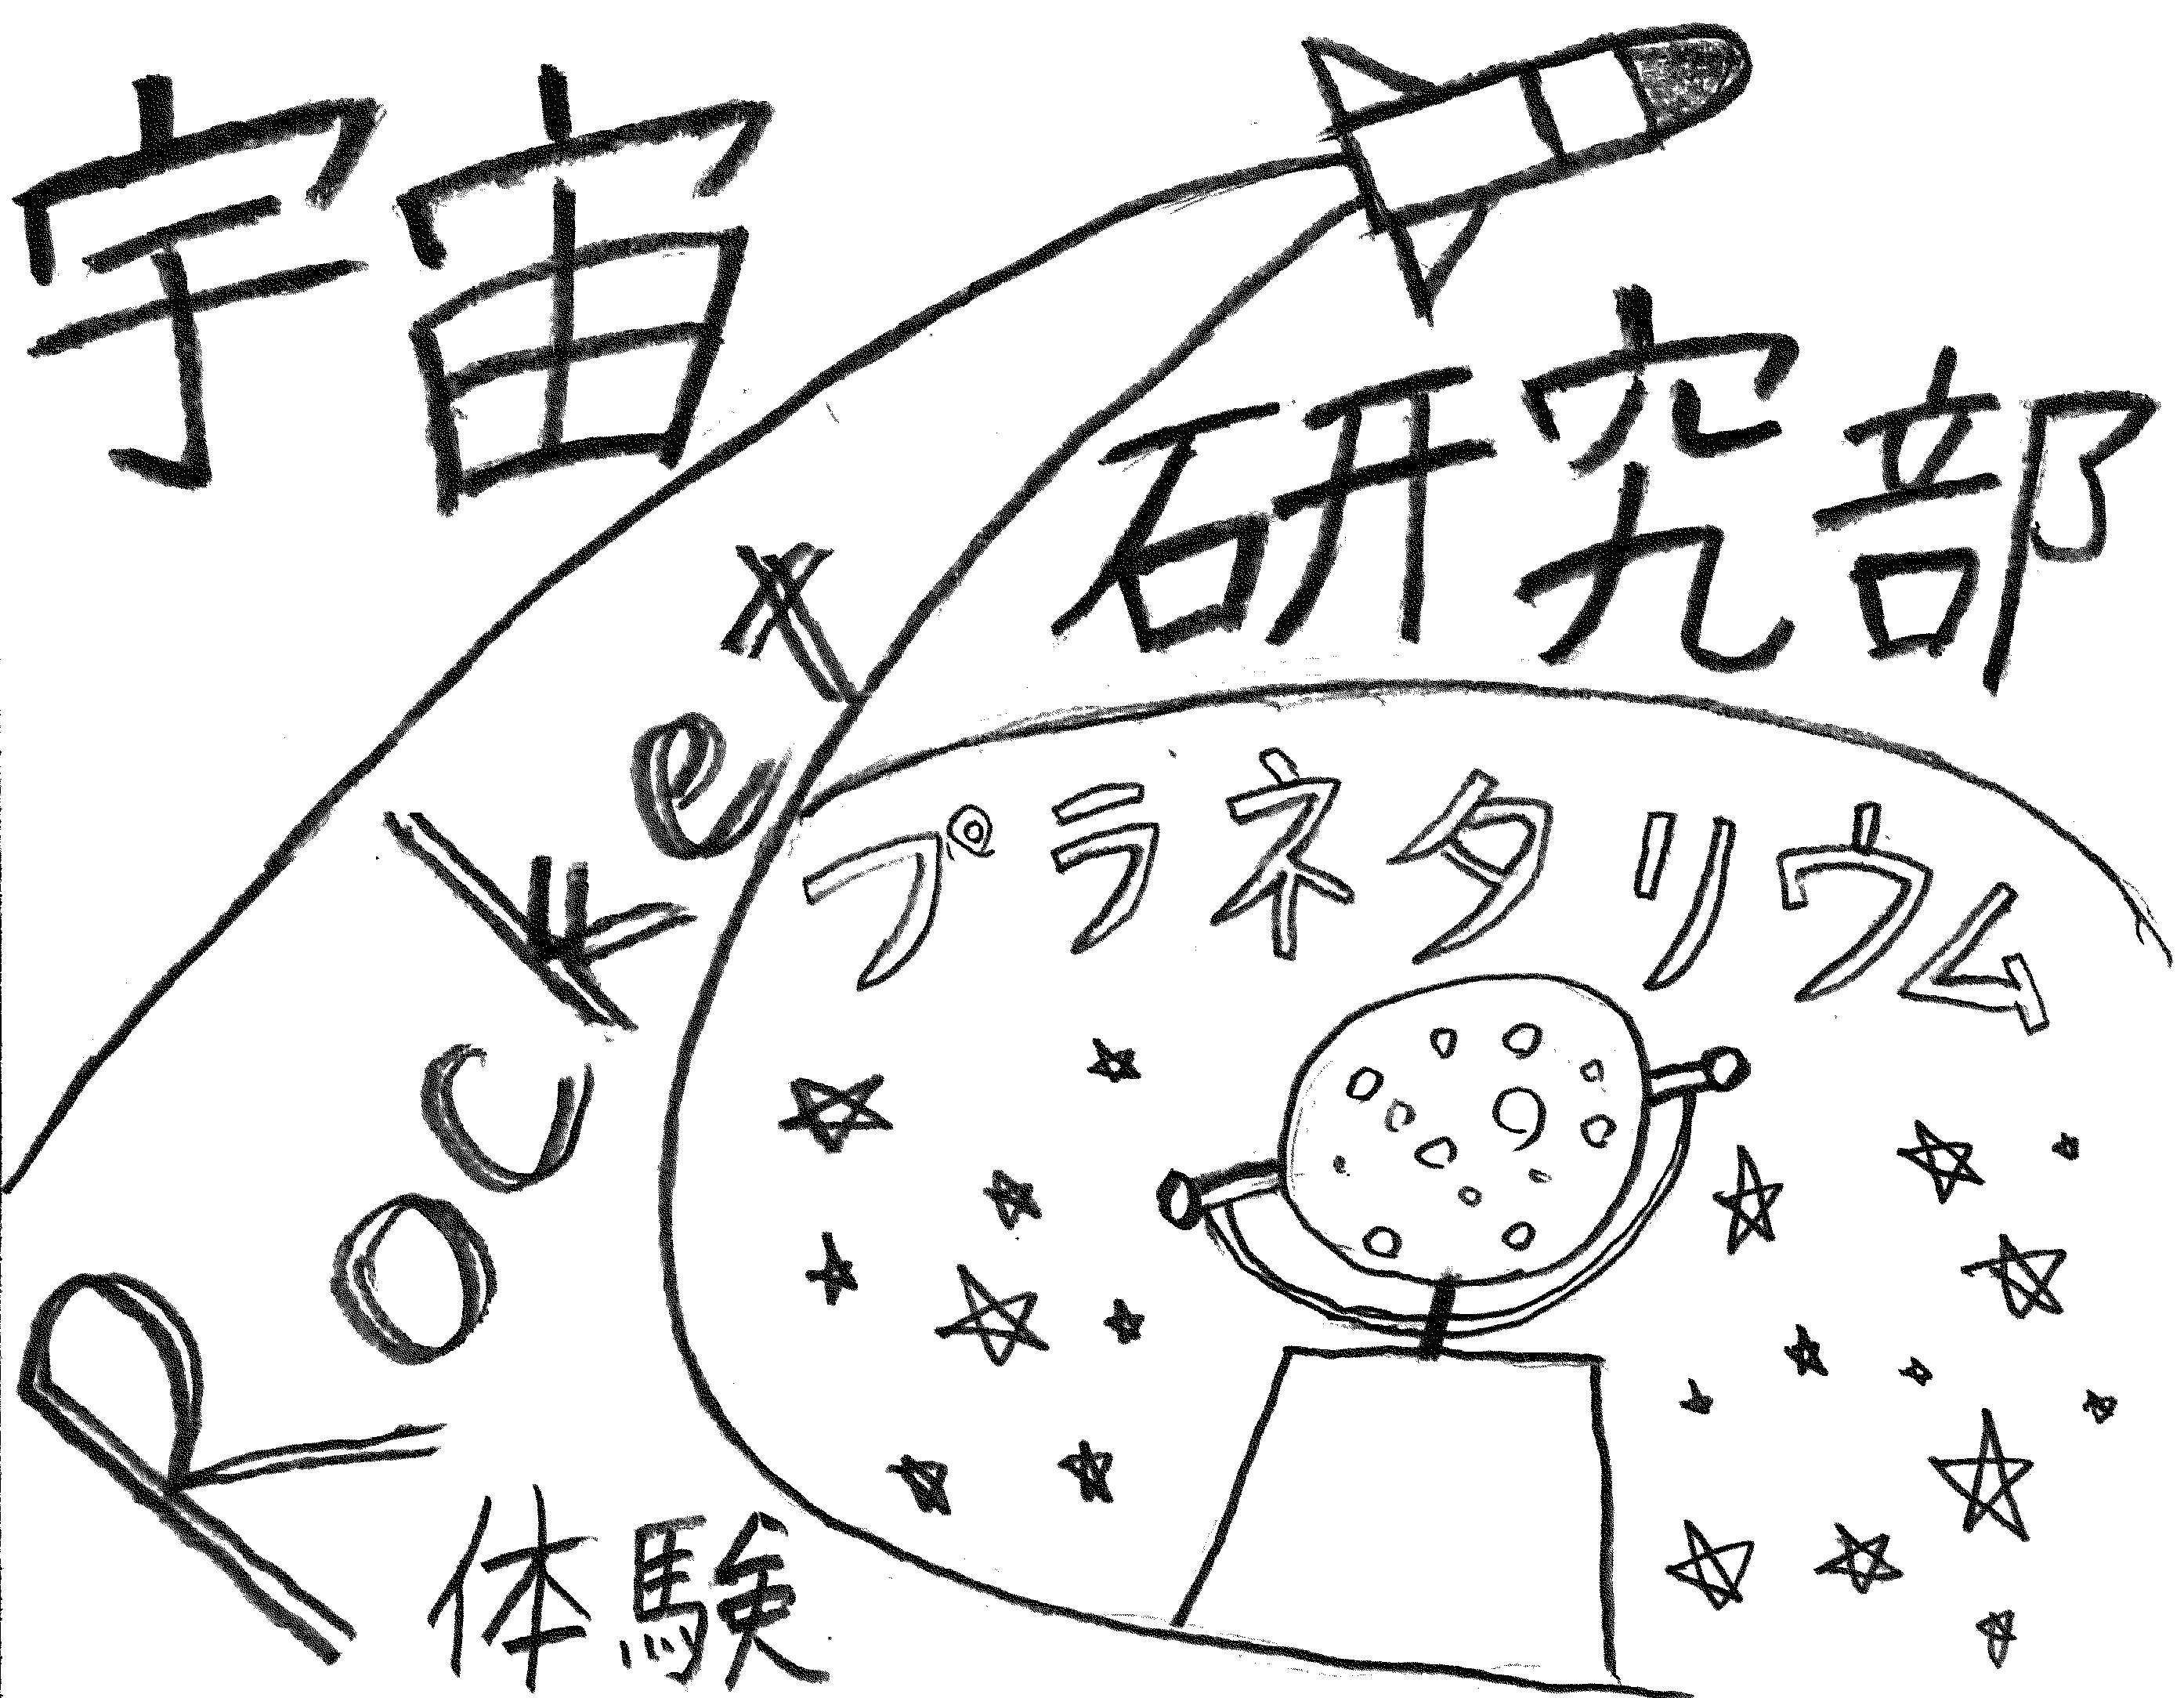 宇宙
研究部
Rocket
体験
プラネタリウム